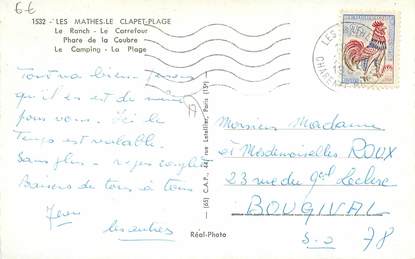 6€
1532 - LES MATHES-LE CLAPET-PLAGE
Le Ranch - Le Carrefour
Phare de la Coubre
Le Camping - La Plage
Tout va bien, pensons
qu'il en est de même
pour vous. Ici le
temps est valable.
Sans plus - 
Baisers de tous à tous
Jean
les autres
(65) C.A.P., 44, rue Letellier, Paris (15e)
Réal-Photo
LES MATHES
CHARENTE
Monsieur Madame
et Mesdemoiselles ROUX
23 rue du Gal Leclerc
BOUGIVAL
S-O 78